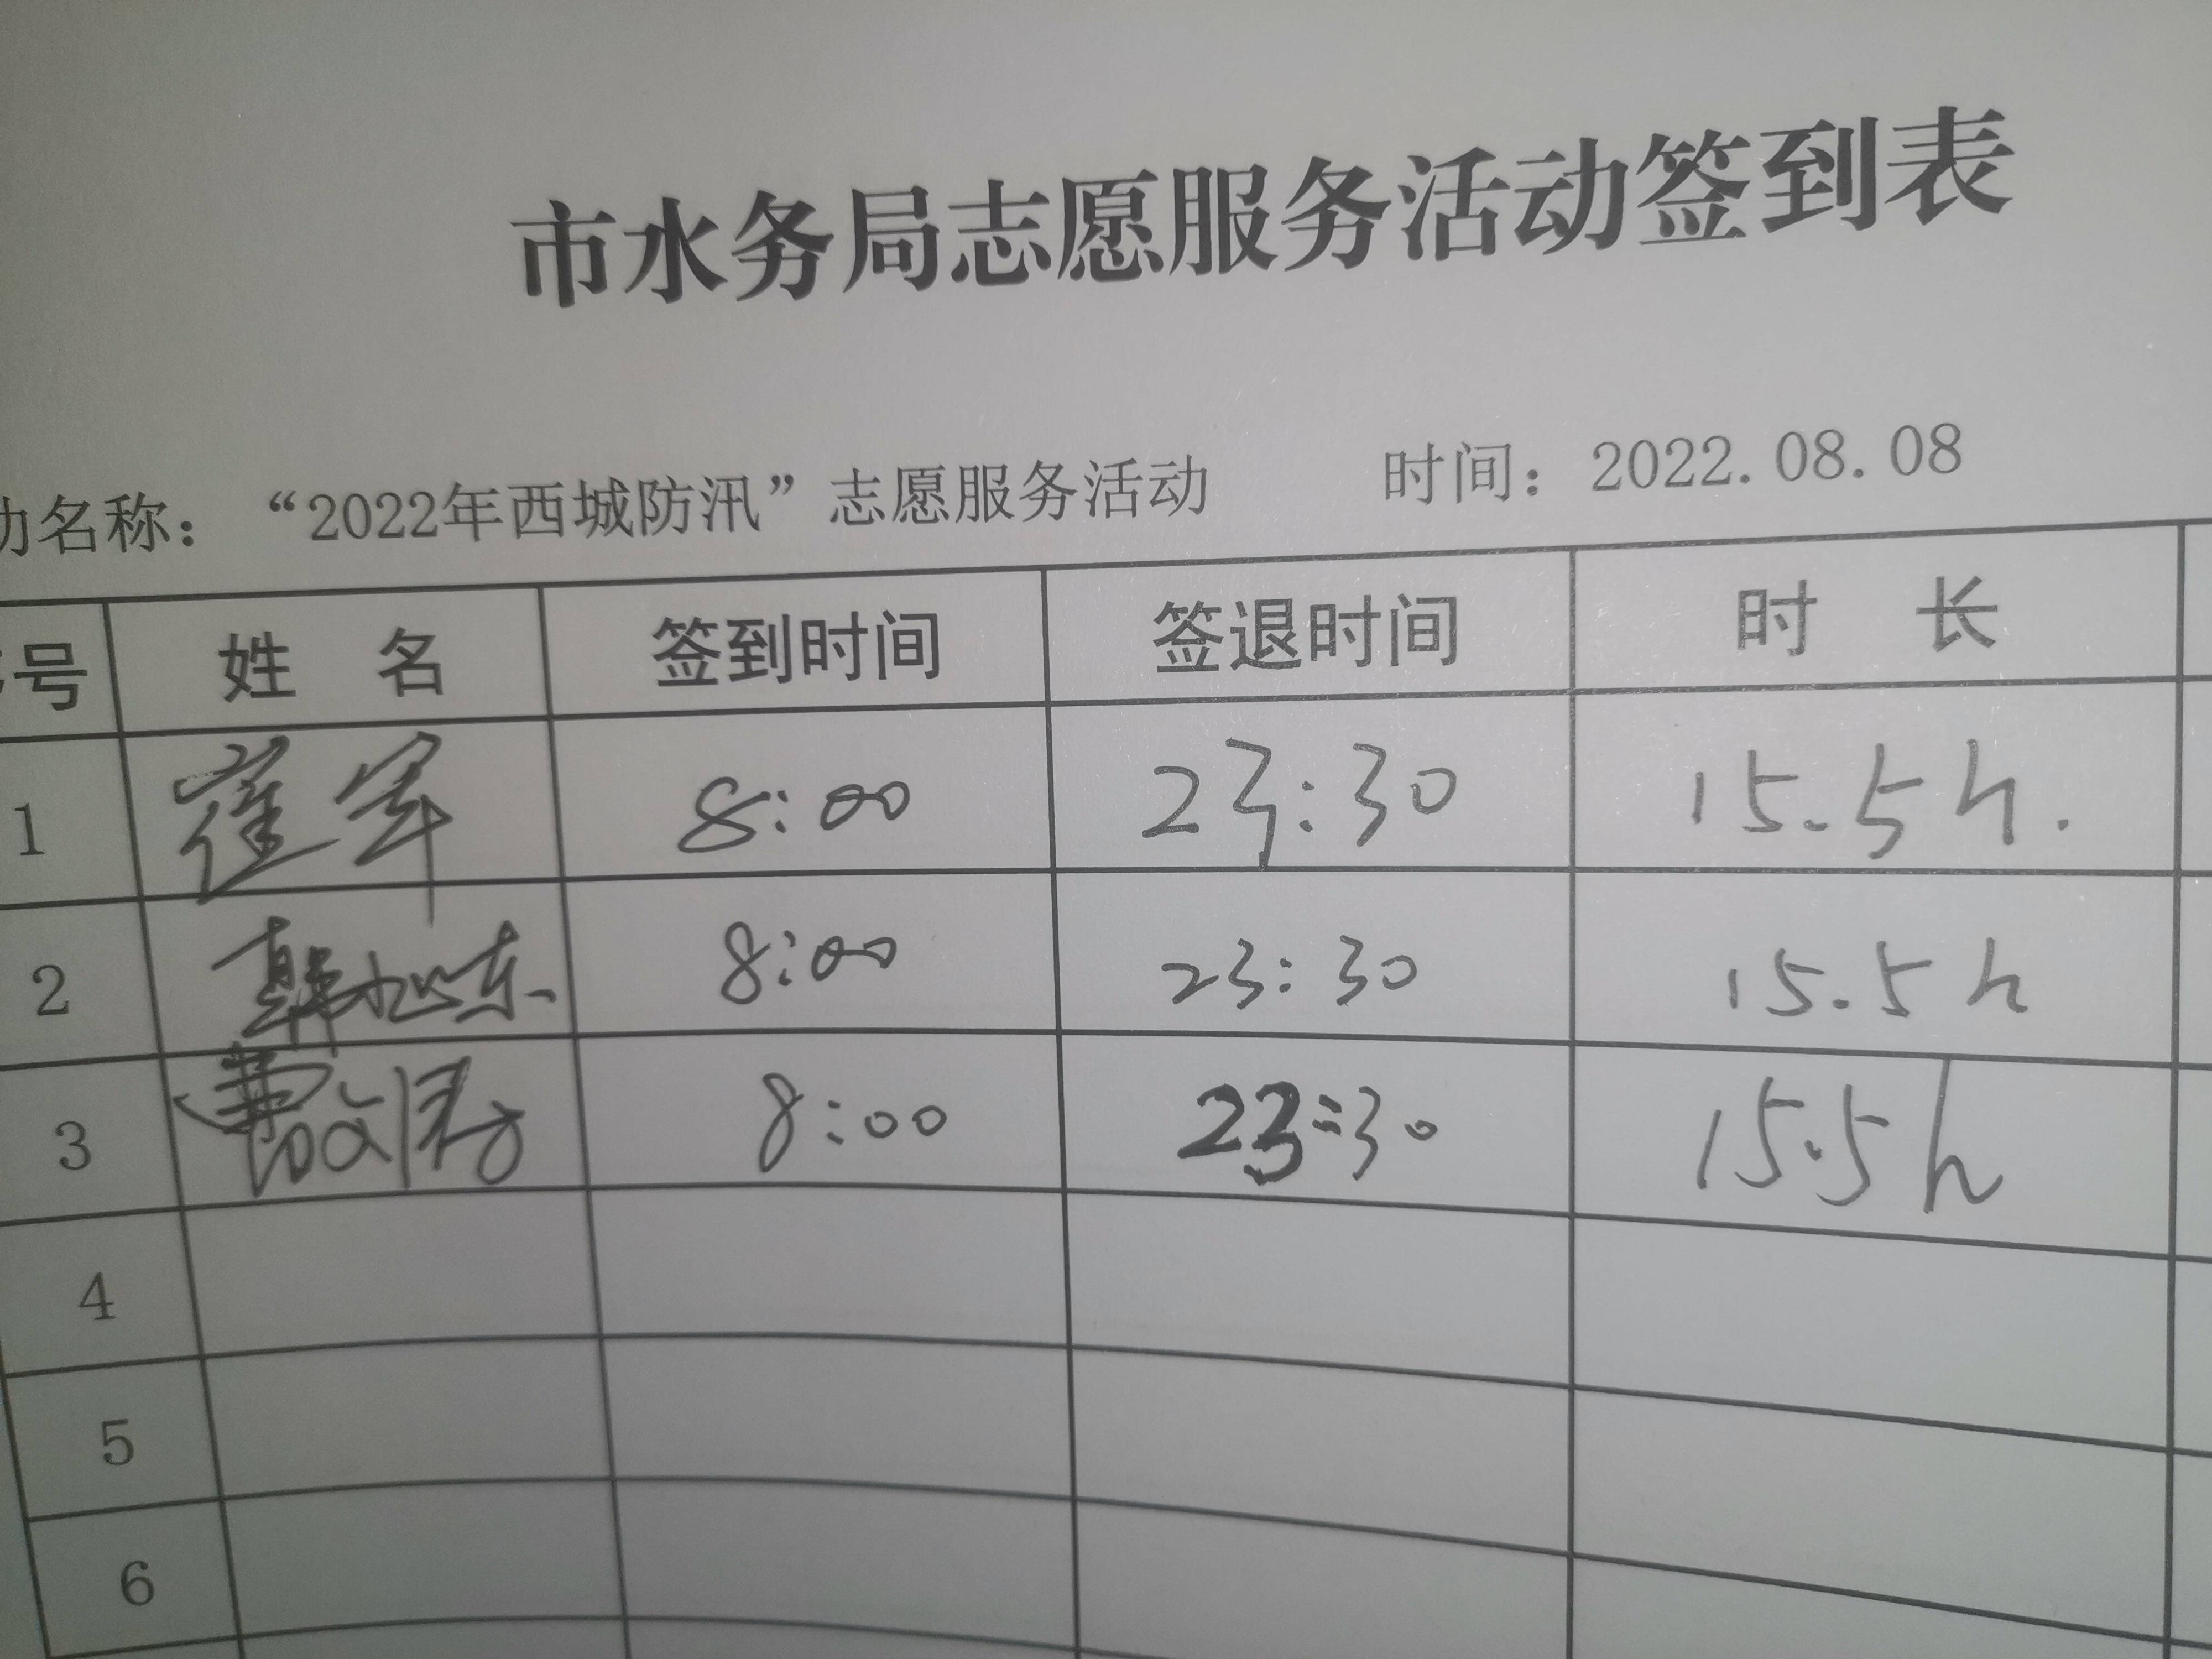 市水务局志愿服务活动签到表
动名称：“2022年西城防汛”志愿服务活动 时间：2022.08.08
序号 姓名 签到时间 签退时间 时长
1 崔军 8:00 23:30 15.5h.
2 韩旭东 8:00 23:30 15.5h
3 8:00 23:30 15.5h
4
5
6